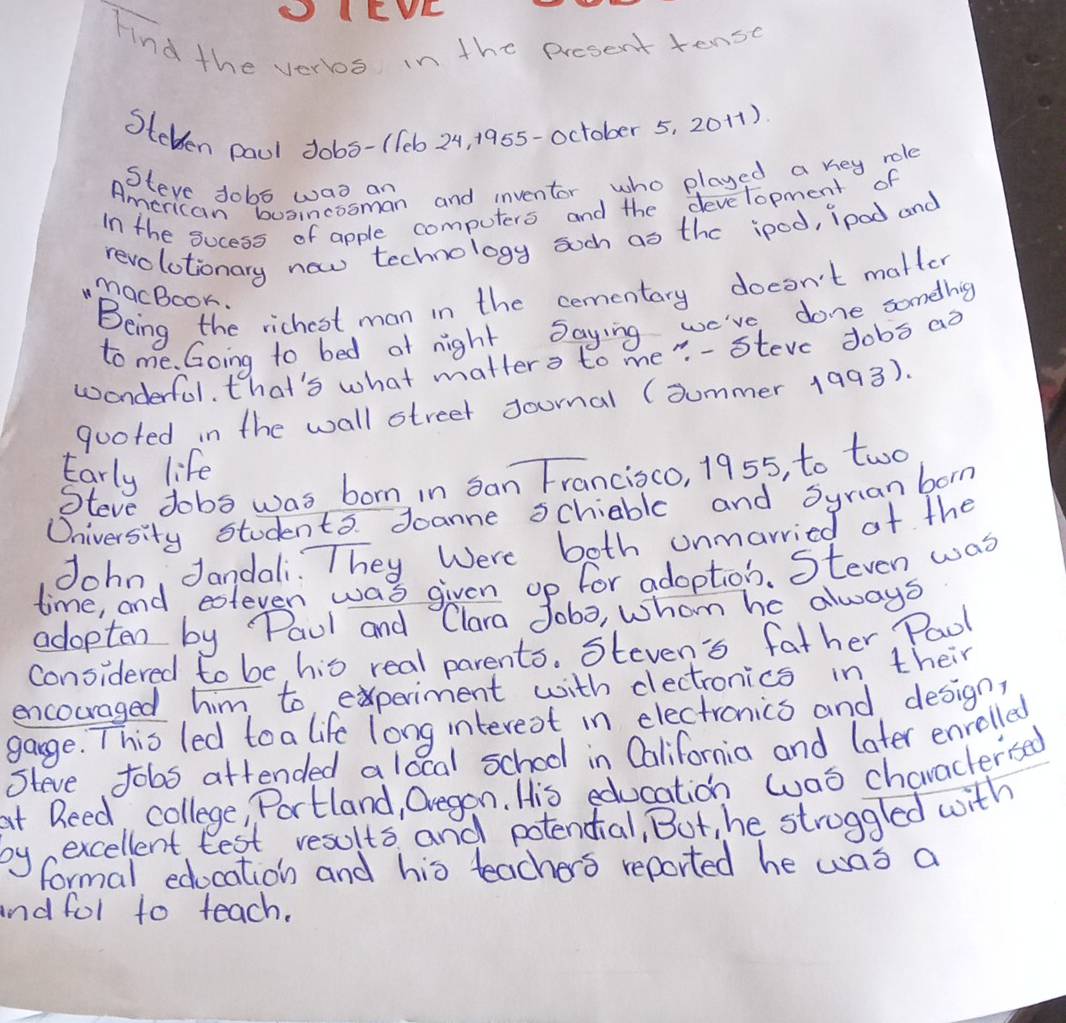 STEVE
Find the verbs in the present tense
Steven paul Jobs-(feb 24,1955-October 5, 2011).
Steve Jobs was an
American businessman and inventor who played a key role
in the sucess of apple computers and the development of
revolutionary new technology such as the ipod, ipad and
macBook.
"Being the richest man in the cementary doesn't matter
to me. Going to bed at night saying we've done somethig
wonderful. that's what matters to me". - Steve Jobs as
quoted in the wall street Journal (summer 1993).
Early life
Steve Jobs was born in San Francisco, 1955, to two
University students Joanne schieble and Syrian born
John Jandali. They were both unmarried at the
time, and esteven was given up for adoption. Steven was
adopten by Paul and Clara Jobs, whom he always
considered to be his real parents. Steven's father Paul
encouraged him to experiment with electronics in their
garge. This led to a life long interest in electronics and design,
Steve Jobs attended a local school in California and later enrolled
at Reed college, Portland, Oregon. His education was characterised
by excellent test results and potential, But, he struggled with
formal education and his teachers reported he was a
indful to teach.